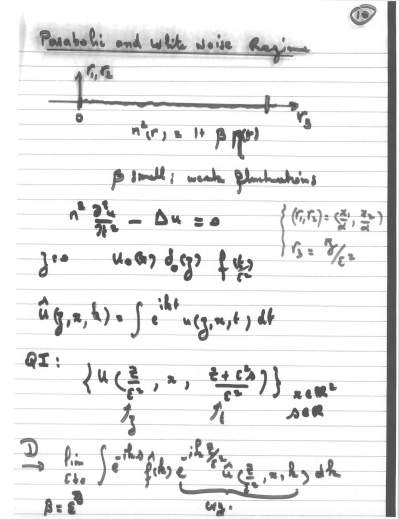 10
Parabolic and White Noise Regime
r₁, r₂
0 r₃
n²(r) = 1 + β μ(r)
β small; weak fluctuations
n² ∂²u/∂t² − Δu = 0
(r₁, r₂) = (x₁/α, x₂/α)
r₃ = z/ε²
z=0 u₀(x) δ₀(z) f(t/ε²)
û(z, x, k) = ∫ e^{ikt} u(z, x, t) dt
QI :
{ u( z/ε², x, (z+ε²s)/ε² ) } x∈ℝ²
s∈ℝ
z t
lim ∫ e^{-iks} f̂(k) e^{-ik z/ε²} û(z/ε², x, k) dk
ε↓0